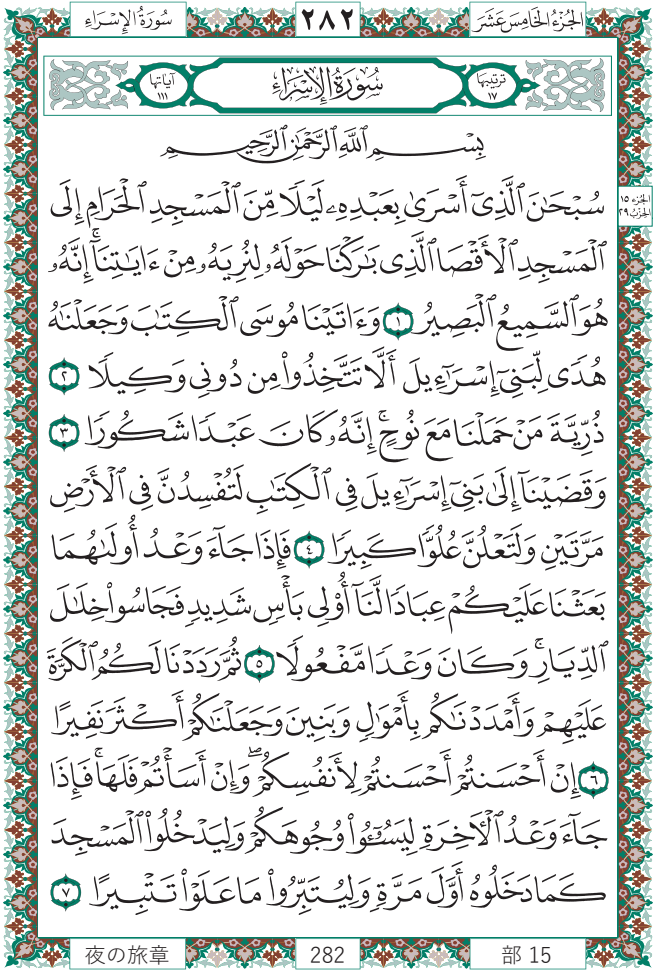 الجُزْءُ الخَامِسَ عَشَرَ
٢٨٢
سُورَةُ الإِسْرَاءِ
ترتيبها ١٧
سُورَةُ الإِسْرَاءِ
آياتها ١١١
بِسْمِ ٱللَّهِ ٱلرَّحْمَٰنِ ٱلرَّحِيمِ
سُبْحَٰنَ ٱلَّذِىٓ أَسْرَىٰ بِعَبْدِهِۦ لَيْلًا مِّنَ ٱلْمَسْجِدِ ٱلْحَرَامِ إِلَى
الجزء ١٥
الحزب ٢٩
ٱلْمَسْجِدِ ٱلْأَقْصَا ٱلَّذِى بَٰرَكْنَا حَوْلَهُۥ لِنُرِيَهُۥ مِنْ ءَايَٰتِنَآ ۚ إِنَّهُۥ
هُوَ ٱلسَّمِيعُ ٱلْبَصِيرُ ١ وَءَاتَيْنَا مُوسَى ٱلْكِتَٰبَ وَجَعَلْنَٰهُ
هُدًى لِّبَنِىٓ إِسْرَٰٓءِيلَ أَلَّا تَتَّخِذُوا۟ مِن دُونِى وَكِيلًا ٢
ذُرِّيَّةَ مَنْ حَمَلْنَا مَعَ نُوحٍ ۚ إِنَّهُۥ كَانَ عَبْدًا شَكُورًا ٣
وَقَضَيْنَآ إِلَىٰ بَنِىٓ إِسْرَٰٓءِيلَ فِى ٱلْكِتَٰبِ لَتُفْسِدُنَّ فِى ٱلْأَرْضِ
مَرَّتَيْنِ وَلَتَعْلُنَّ عُلُوًّا كَبِيرًا ٤ فَإِذَا جَآءَ وَعْدُ أُولَىٰهُمَا
بَعَثْنَا عَلَيْكُمْ عِبَادًا لَّنَآ أُو۟لِى بَأْسٍ شَدِيدٍ فَجَاسُوا۟ خِلَٰلَ
ٱلدِّيَارِ ۚ وَكَانَ وَعْدًا مَّفْعُولًا ٥ ثُمَّ رَدَدْنَا لَكُمُ ٱلْكَرَّةَ
عَلَيْهِمْ وَأَمْدَدْنَٰكُم بِأَمْوَٰلٍ وَبَنِينَ وَجَعَلْنَٰكُمْ أَكْثَرَ نَفِيرًا
٦ إِنْ أَحْسَنتُمْ أَحْسَنتُمْ لِأَنفُسِكُمْ ۖ وَإِنْ أَسَأْتُمْ فَلَهَا ۚ فَإِذَا
جَآءَ وَعْدُ ٱلْءَاخِرَةِ لِيَسُۥٓـُٔوا۟ وُجُوهَكُمْ وَلِيَدْخُلُوا۟ ٱلْمَسْجِدَ
كَمَا دَخَلُوهُ أَوَّلَ مَرَّةٍ وَلِيُتَبِّرُوا۟ مَا عَلَوْا۟ تَتْبِيرًا ٧
夜の旅章
282
部 15